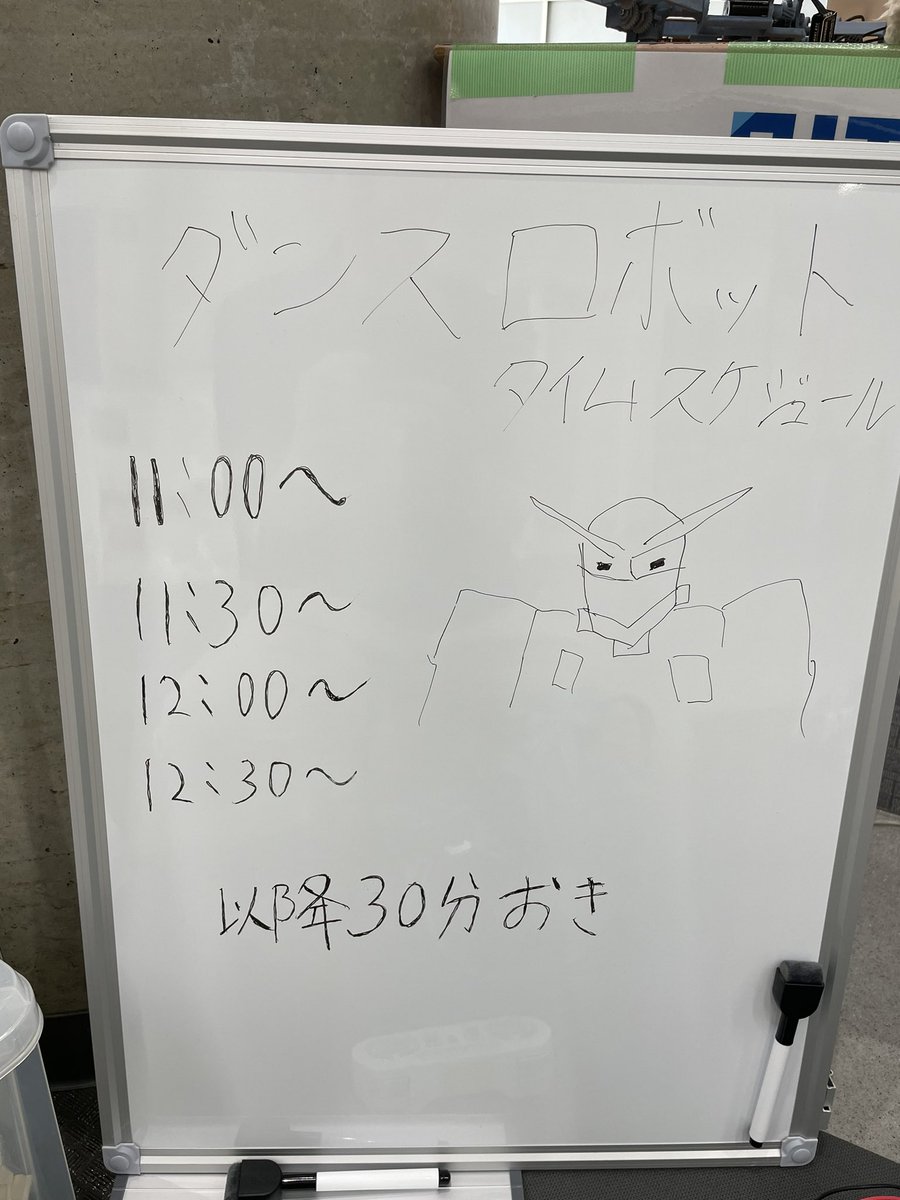 ダンスロボット
タイムスケジュール
11:00～
11:30～
12:00～
12:30～
以降30分おき